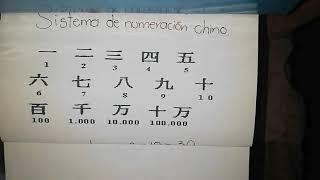 Sistema de numeración chino
一 二 三 四 五
1 2 3 4 5
六 七 八 九 十
6 7 8 9 10
百 千 万 十万
100 1.000 10.000 100.000